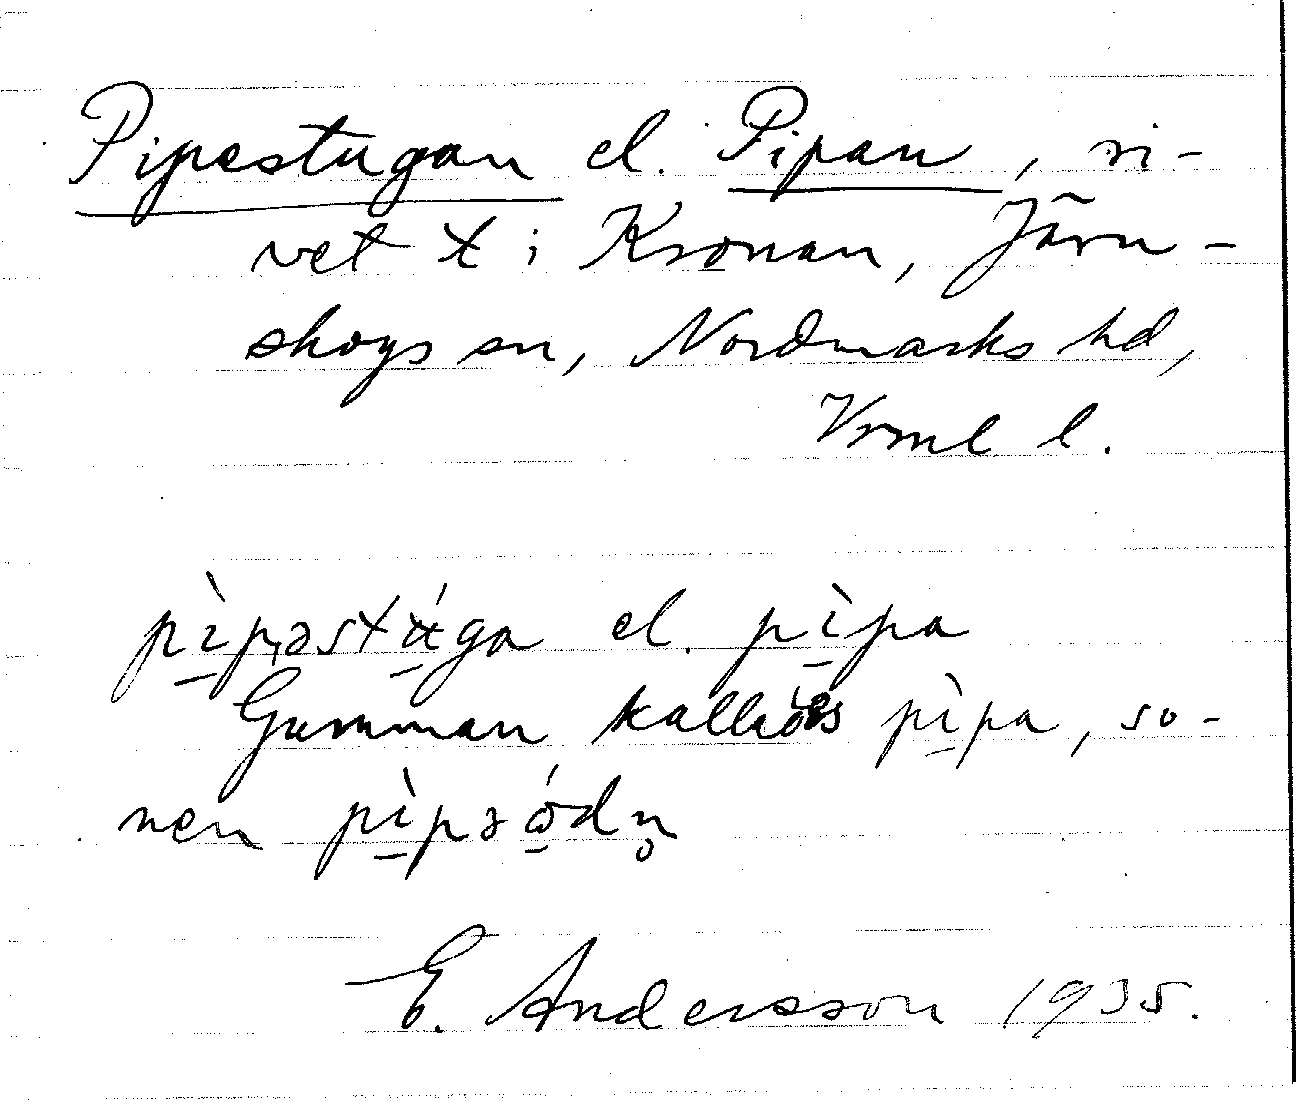 Pipestugan el. Pipan, ri-
vet t i Kronan, Järn-
skogs sn, Nordmarks hd,
Vrml l.
pìpəstúga el. pìpa
Gumman kallades pìpa, so-
nen pìpəódn̥
E. Andersson 1935.